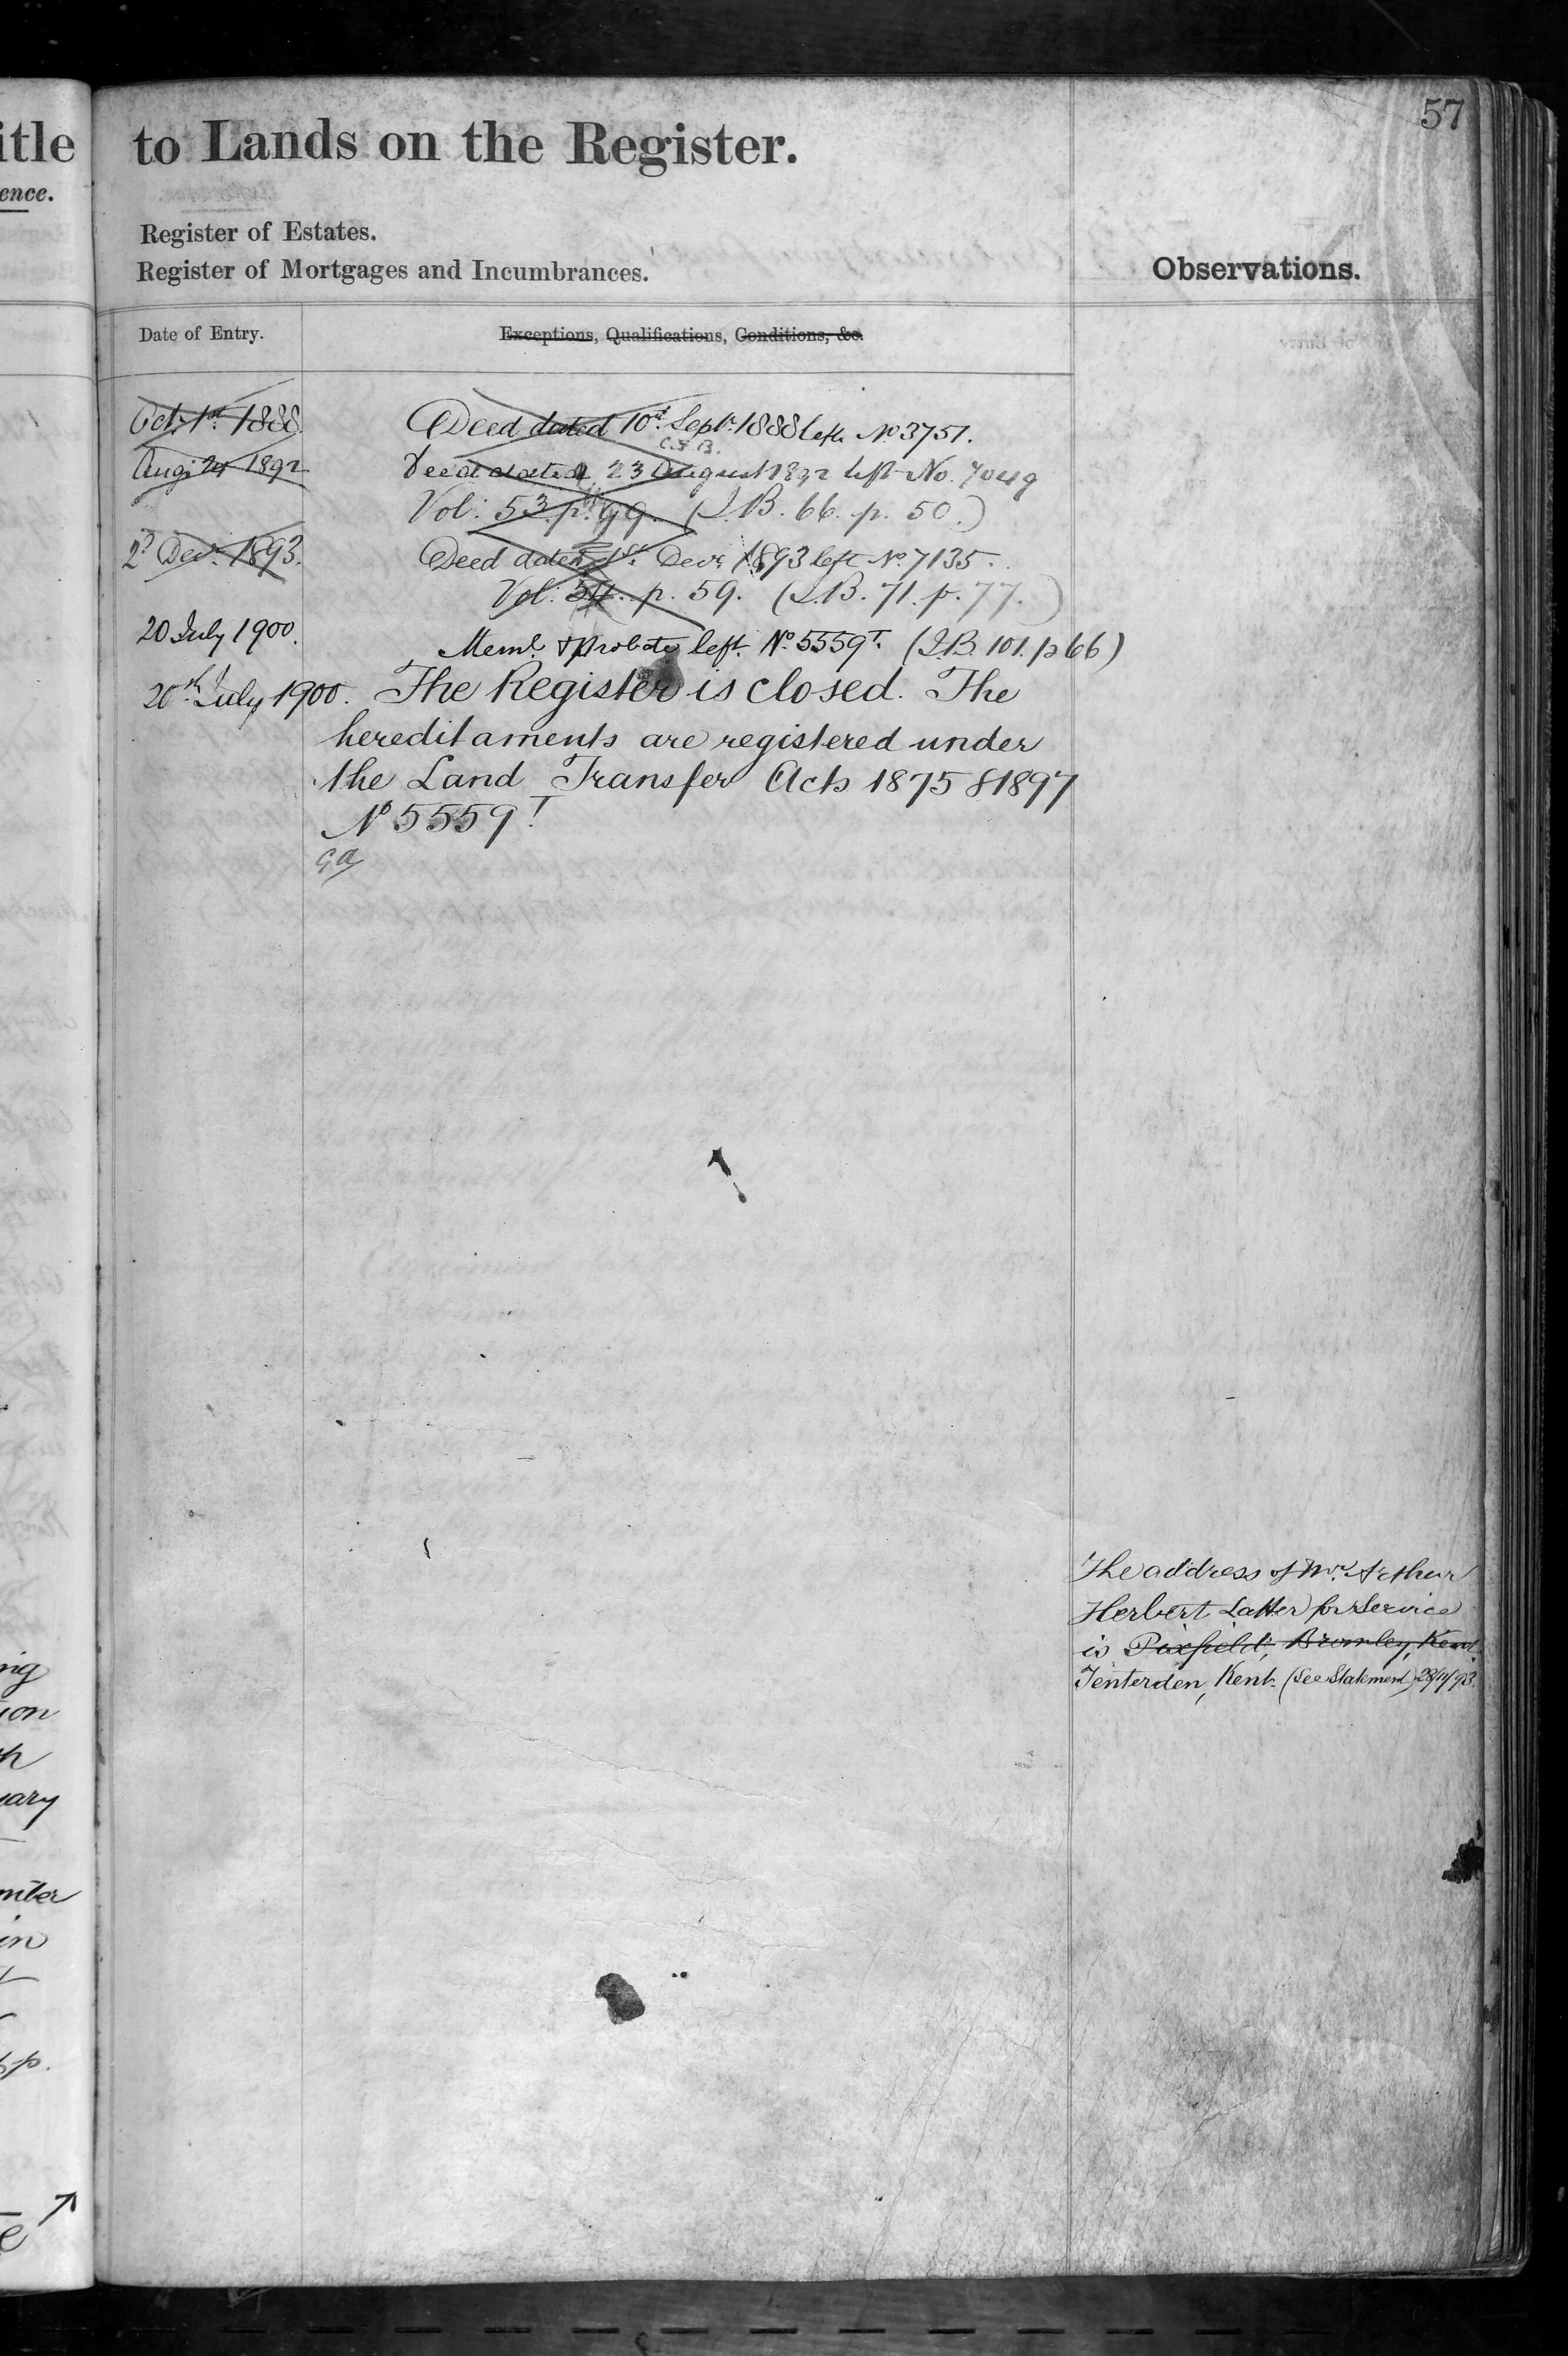 57
itle to Lands on the Register.
ence.
Register of Estates.
Register of Mortgages and Incumbrances.
Observations.
Date of Entry. Exceptions, Qualifications, Conditions, &c.
Oct. 1st. 1888. Deed dated 10th. Sept. 1888 left No 3751.
C.F.B.
Aug. 24 1892 Deed dated 23 August 1892 left No. 7049
Vol: 53. p. 99. (I.B. 66. p. 50.)
2d Decr. 1893. Deed dated 1st. Decr. 1893 left No. 7135.
Vol: 54. p. 59. (I.B. 71. p. 77.)
20 July 1900. Meml. & Probate left. No. 5559T. (I.B. 101. p 66)
20th July 1900. The Register is closed. The
hereditaments are registered under
the Land Transfer Acts 1875 & 1897
No 5559T.
The address of Mr. Arthur
Herbert Latter for Service
is Pixfield, Bromley, Kent
Tenterden, Kent. (See Statement) 28/11/93.
ng
ion
ary
mber
in
p.
e